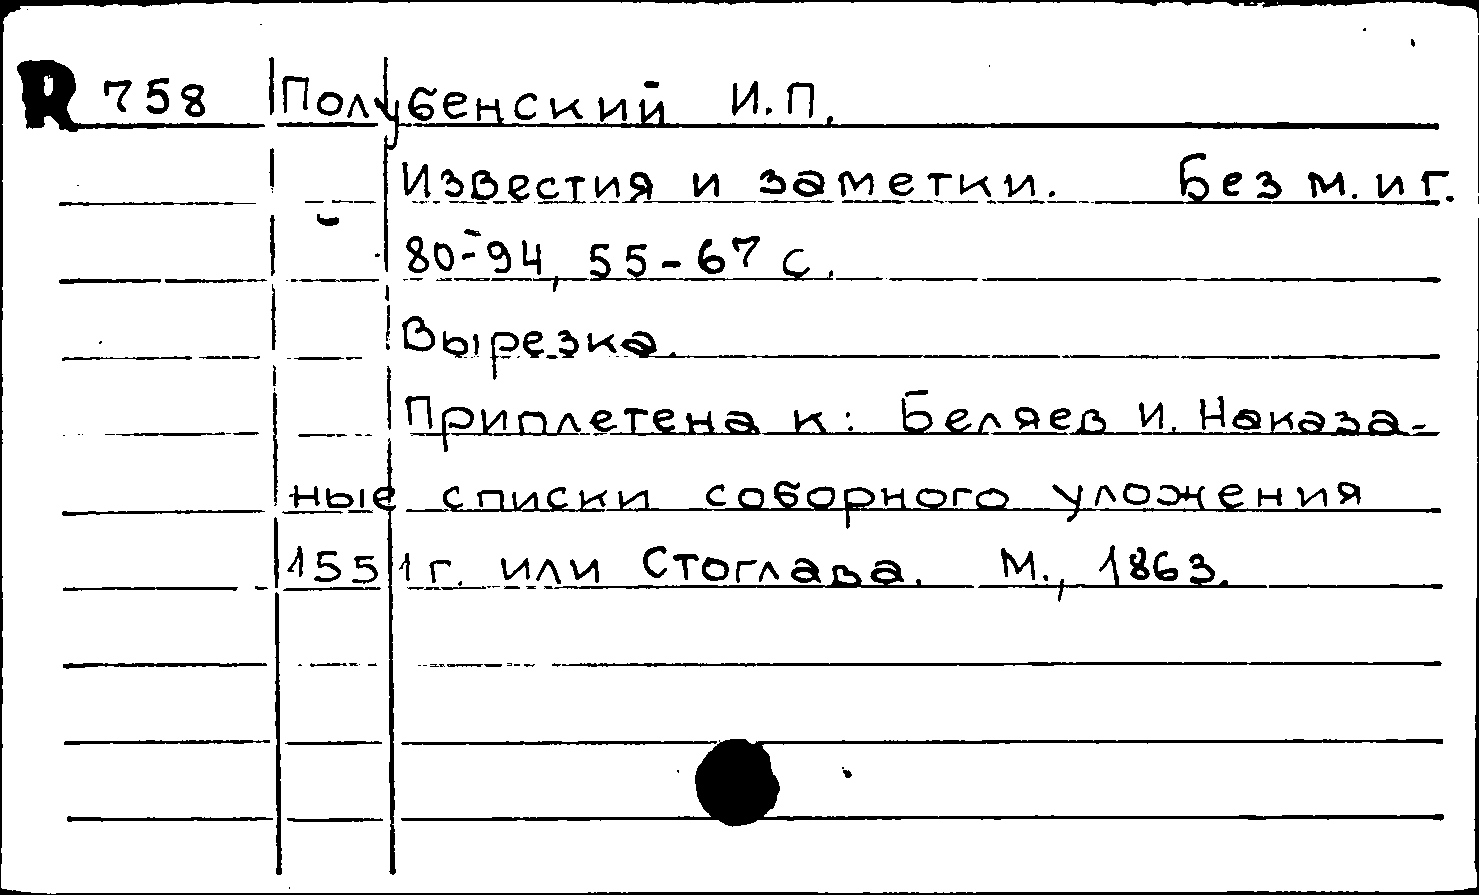 R 758 Полубенский И.П.
Известия и заметки. Без м. и г.
80-94, 55-67 с.
Вырезка.
Приплетена к: Беляев И. Наказа-
ные списки соборного уложения
1551 г. или Стоглава. М., 1863.